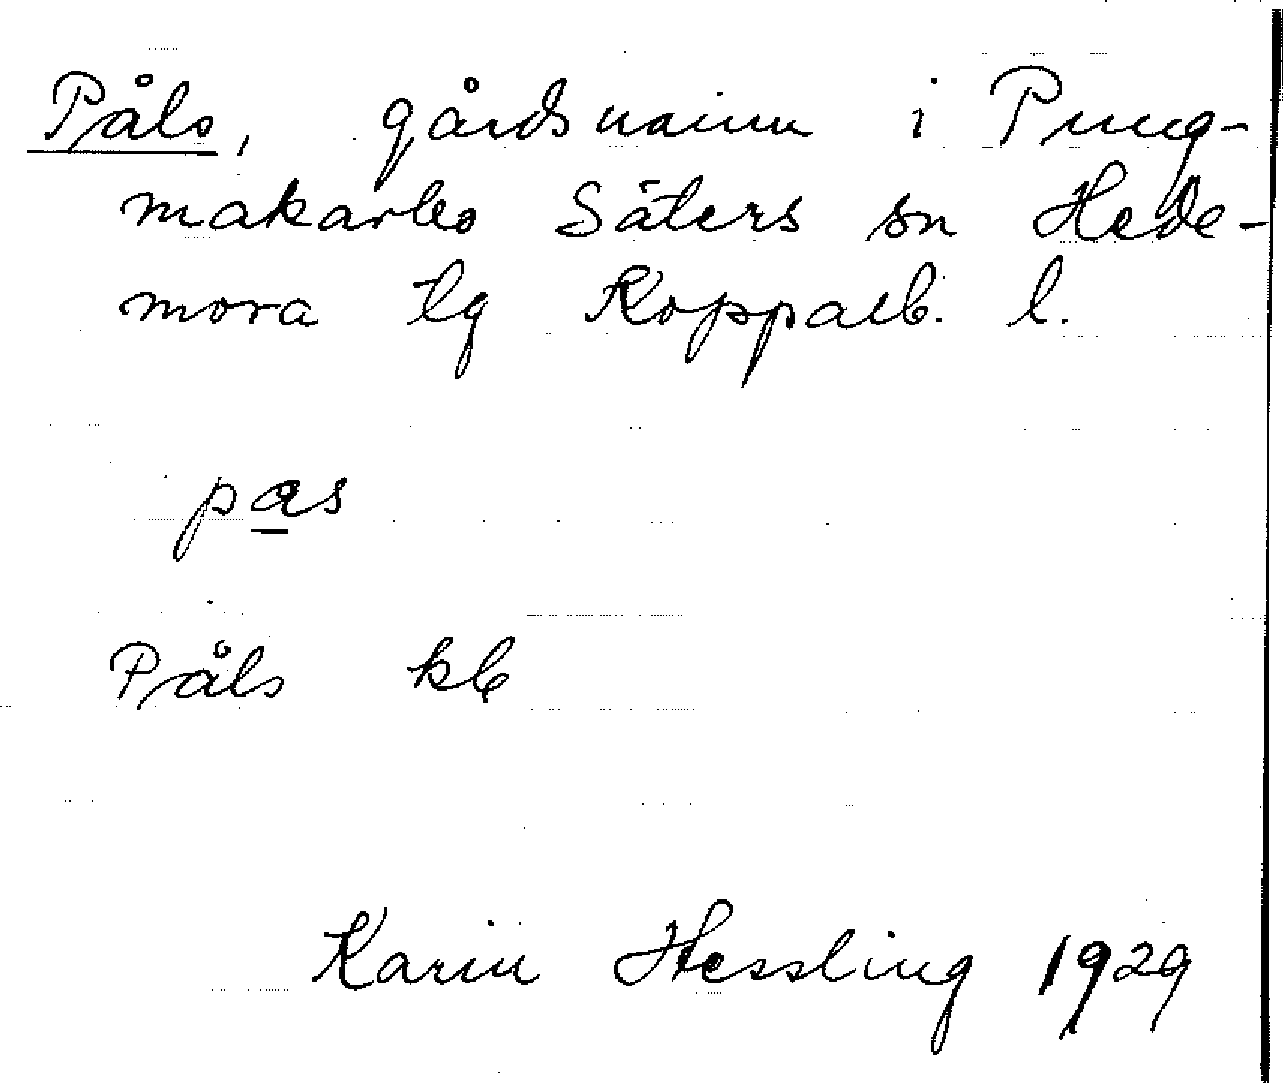 Påls, gårdsnamn i Pung-
makarbo Säters sn Hede-
mora tg Kopparb. l.
pas
Påls kb
Karin Hessling 1929